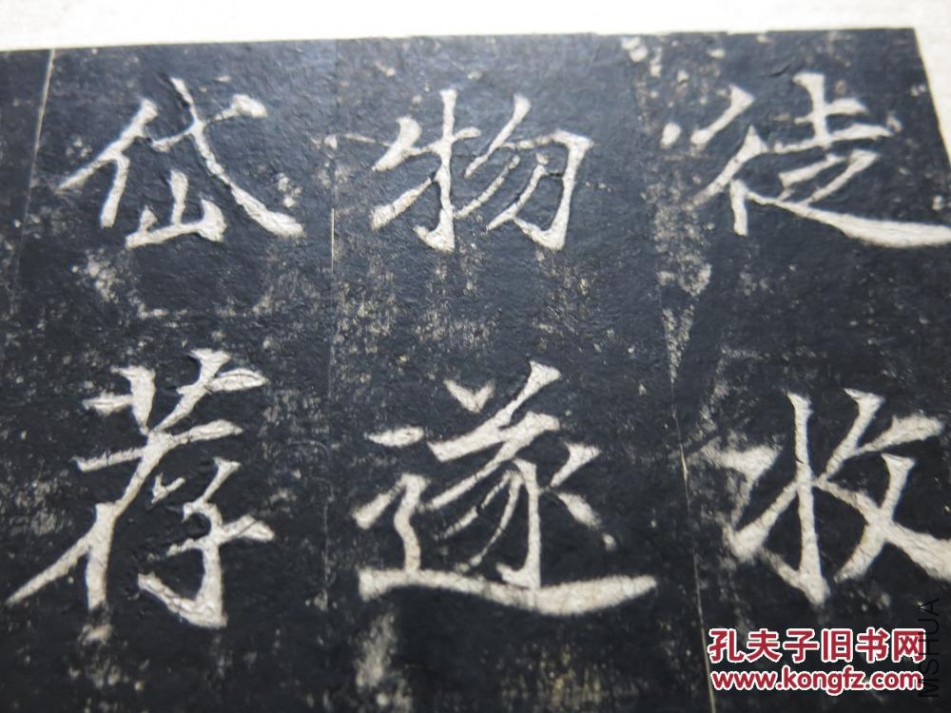 徒收
物遂
岱荐
孔夫子旧书网
www.kongfz.com
MSIHUA